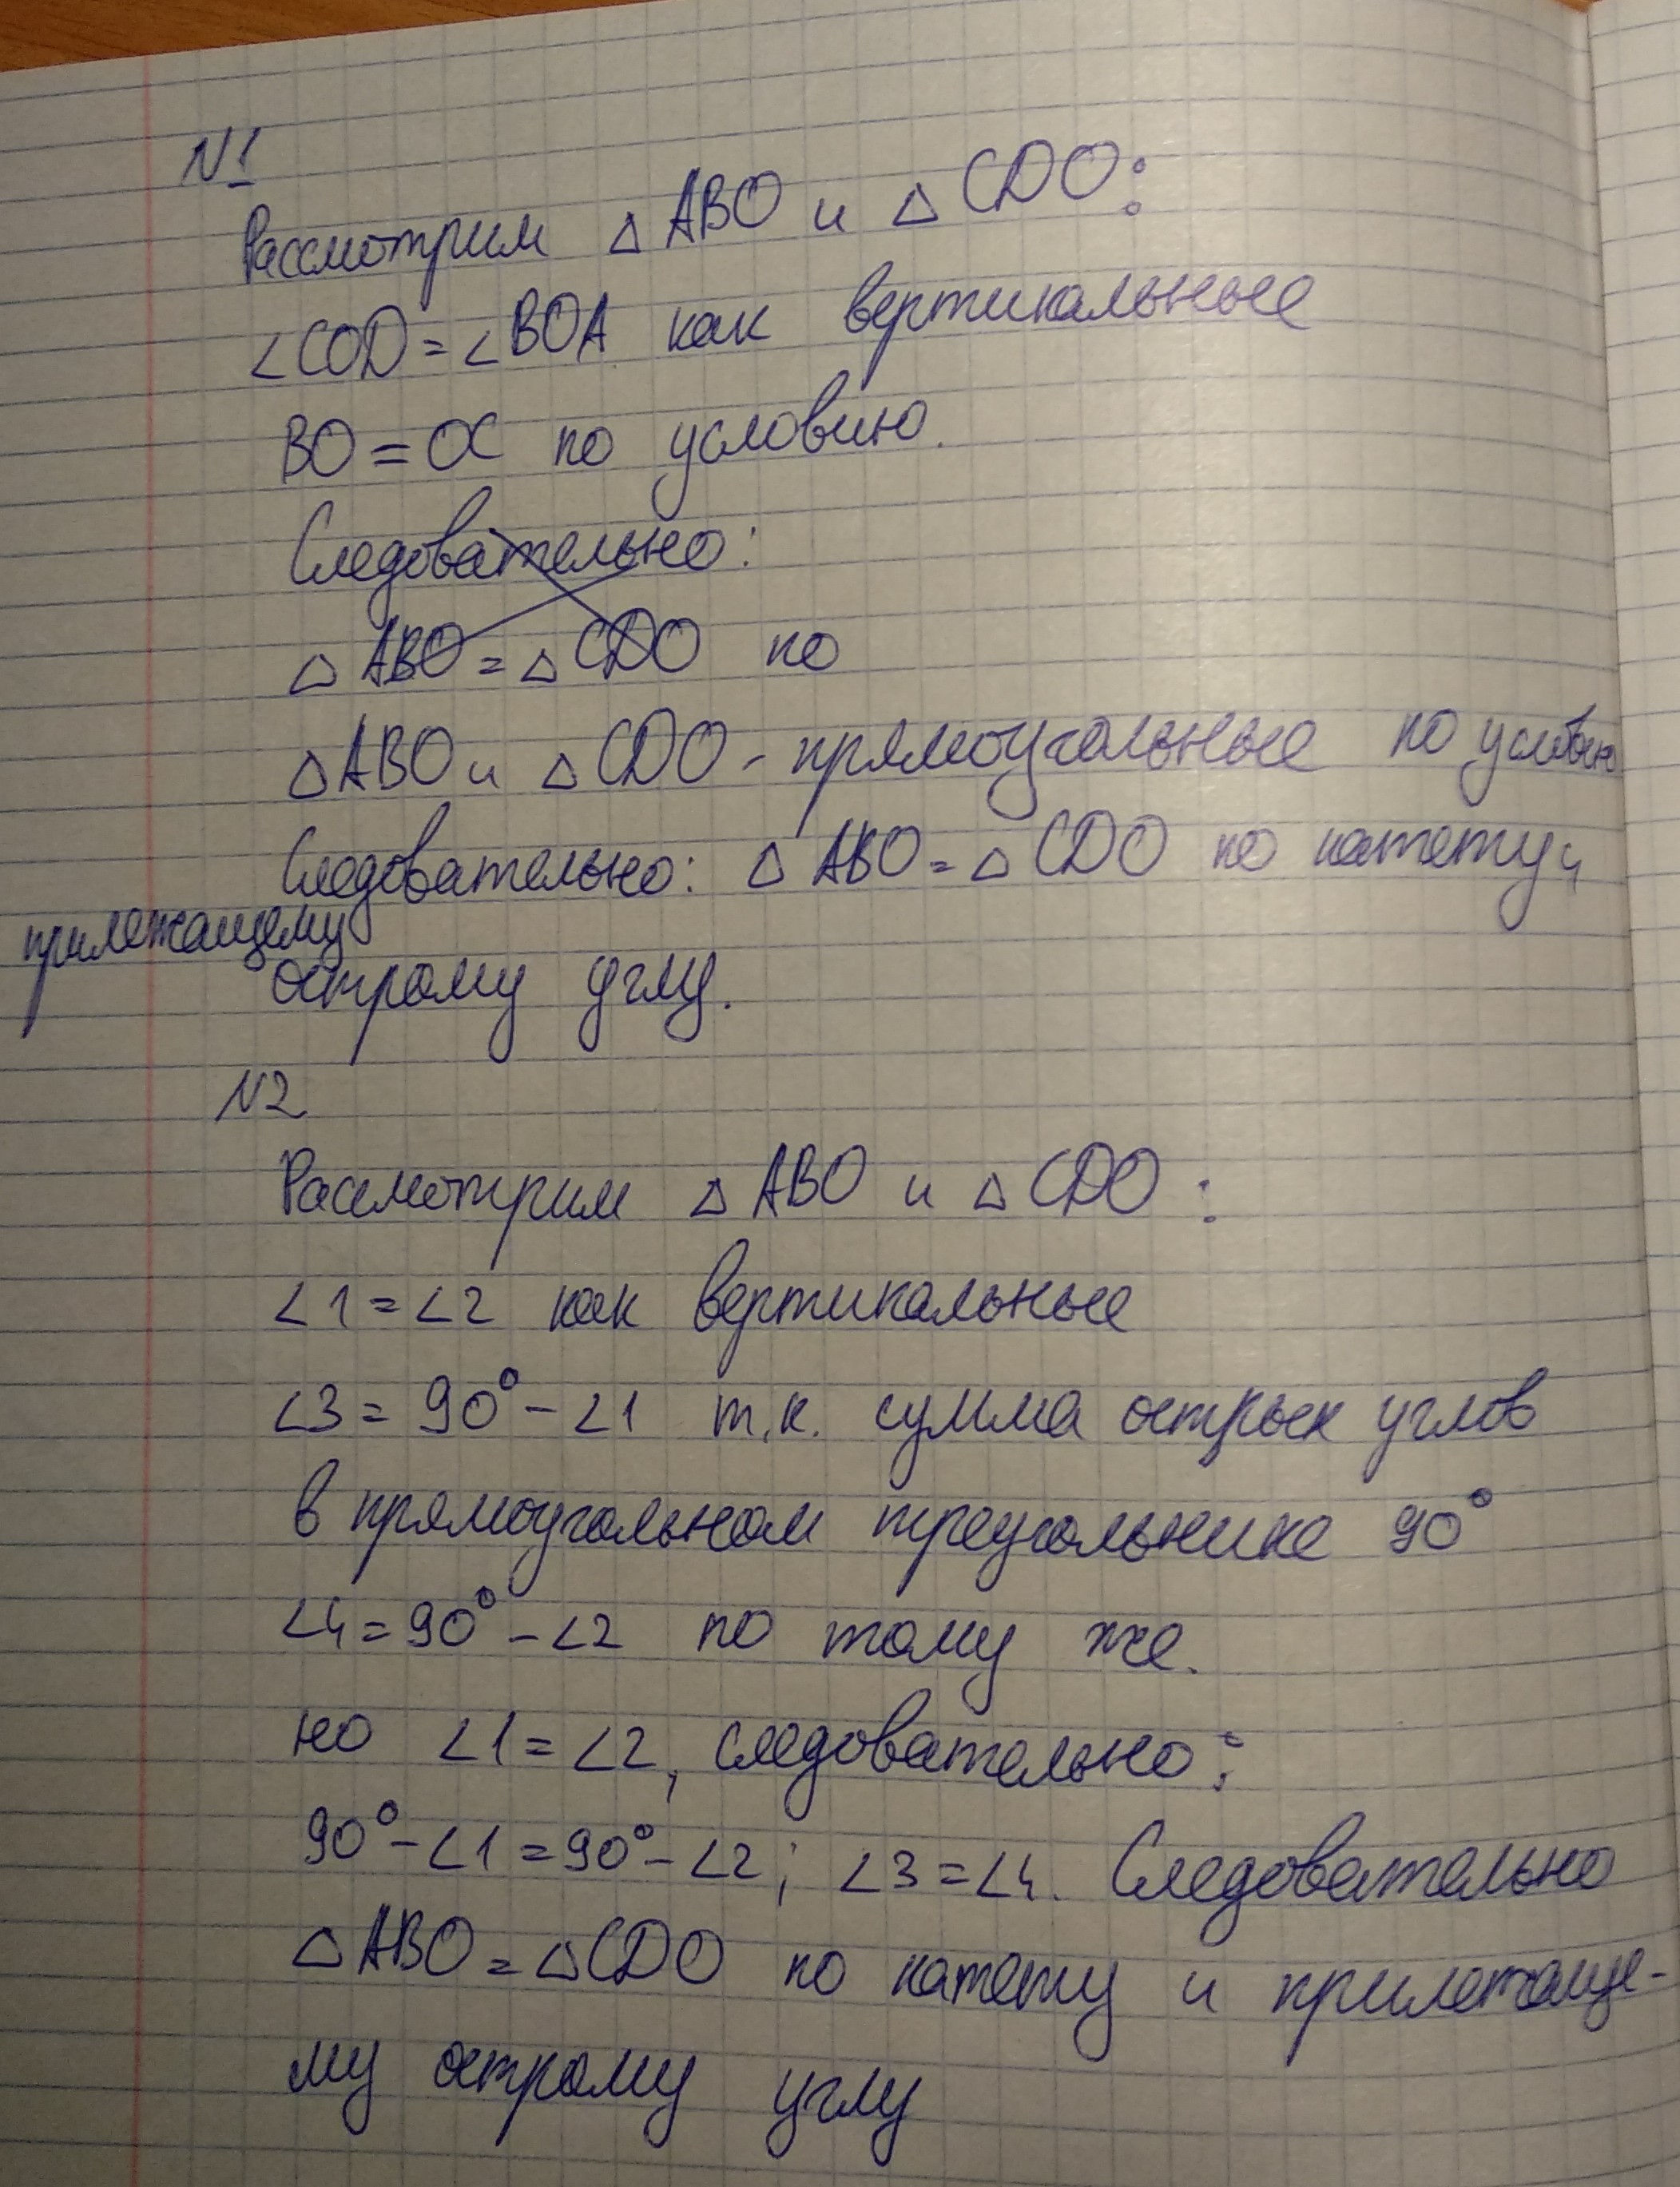 N1
Рассмотрим △ ABO и △ CDO:
∠COD = ∠BOA как вертикальные
BO = OC по условию.
Следовательно:
△ ABO = △ CDO по
△ ABO и △ CDO - прямоугольные по условию
Следовательно: △ ABO = △ CDO по катету и
прилежащему
острому углу.
N2
Рассмотрим △ ABO и △ CDO :
∠1 = ∠2 как вертикальные
∠3 = 90° - ∠1 т.к. сумма острых углов
в прямоугольном треугольнике 90°
∠4 = 90° - ∠2 по тому же.
но ∠1 = ∠2, следовательно:
90° - ∠1 = 90° - ∠2; ∠3 = ∠4. Следовательно
△ ABO = △ CDO по катету и прилежаще-
му острому углу